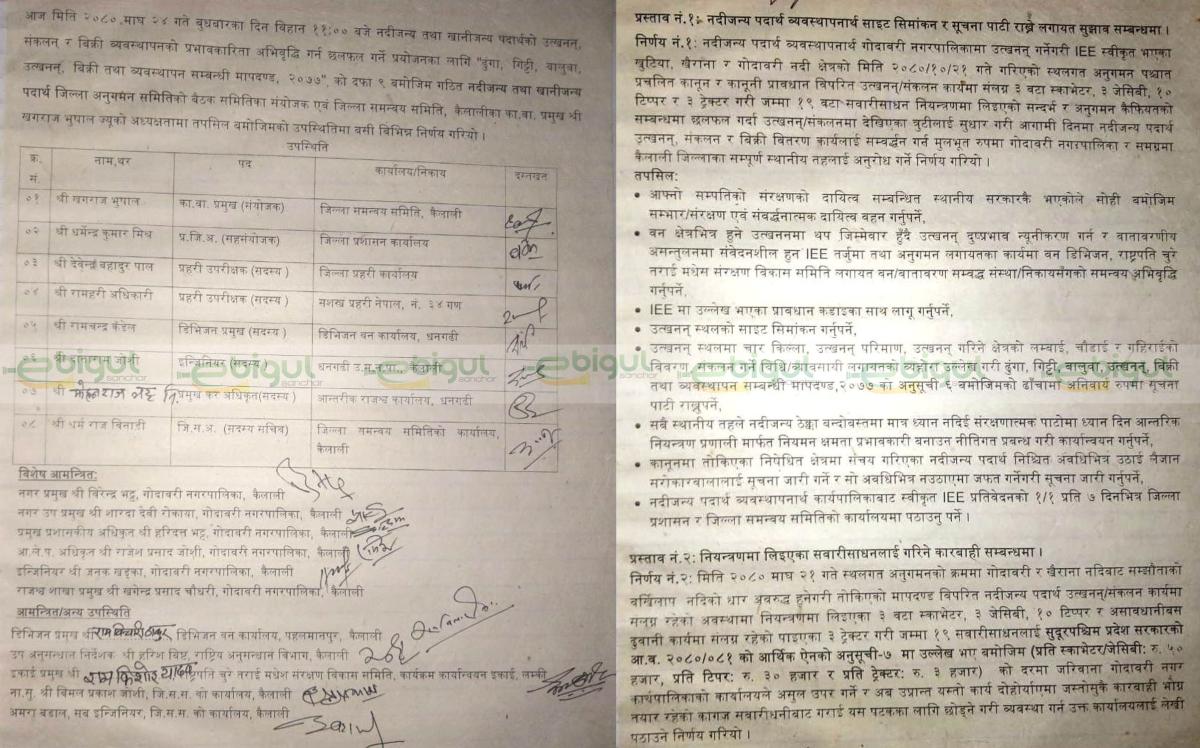 आज मिति २०८०,माघ २४ गते बुधबारका दिन बिहान ११:०० बजे नदीजन्य तथा खानीजन्य पदार्थको उत्खनन्,
संकलन र बिक्री व्यवस्थापनको प्रभावकारिता अभिवृद्धि गर्न छलफल गर्ने प्रयोजनका लागि "ढुंगा, गिट्टी, बालुवा,
उत्खनन्, बिक्री तथा व्यवस्थापन सम्बन्धी मापदण्ड, २०७७", को दफा ९ बमोजिम गठित नदीजन्य तथा खानीजन्य
पदार्थ जिल्ला अनुगमन समितिको बैठक समितिका संयोजक एवं जिल्ला समन्वय समिति, कैलालीका का.वा. प्रमुख श्री
खगराज भुषाल ज्यूको अध्यक्षतामा तपसिल बमोजिमको उपस्थितिमा बसी बिभिन्न निर्णय गरियो ।
उपस्थिति
क्र. सं. नाम,थर पद कार्यालय/निकाय दस्तखत
०१ श्री खगराज भुषाल का.वा. प्रमुख (संयोजक) जिल्ला समन्वय समिति, कैलाली
०२ श्री धर्मेन्द्र कुमार मिश्र प्र.जि.अ. (सहसंयोजक) जिल्ला प्रशासन कार्यालय
०३ श्री देवेन्द्र बहादुर पाल प्रहरी उपरीक्षक (सदस्य) जिल्ला प्रहरी कार्यालय
०४ श्री रामहरी अधिकारी प्रहरी उपरीक्षक (सदस्य) सशस्त्र प्रहरी नेपाल, नं. ३४ गण
०५ श्री रामचन्द्र कंडेल डिभिजन प्रमुख (सदस्य) डिभिजन वन कार्यालय, धनगढी
०६ श्री जोशी इन्जिनियर (सदस्य) धनगढी उ.म.न.पा., कैलाली
०७ श्री नि.प्रमुख कर अधिकृत(सदस्य) आन्तरीक राजश्व कार्यालय, धनगढी
०८ श्री धर्म राज बिनाडी जि.स.अ. (सदस्य सचिव) जिल्ला समन्वय समितिको कार्यालय,
कैलाली
विशेष आमन्त्रित:
नगर प्रमुख श्री बिरेन्द्र भट्ट, गोदावरी नगरपालिका, कैलाली
नगर उप प्रमुख श्री शारदा देवी रोकाया, गोदावरी नगरपालिका, कैलाली
प्रमुख प्रशासकीय अधिकृत श्री हरिदत्त भट्ट, गोदावरी नगरपालिका, कैलाली
आ.ले.प. अधिकृत श्री राजेश प्रसाद जोशी, गोदावरी नगरपालिका, कैलाली
इन्जिनियर श्री जनक खड्का, गोदावरी नगरपालिका, कैलाली
राजश्व शाखा प्रमुख श्री खगेन्द्र प्रसाद चौधरी, गोदावरी नगरपालिका, कैलाली
आमन्त्रित/अन्य उपस्थिति
डिभिजन प्रमुख श्री डिभिजन वन कार्यालय, पहलमानपुर, कैलाली
उप अनुसन्धान निर्देशक श्री हरिश बिष्ट, राष्ट्रिय अनुसन्धान विभाग, कैलाली
इकाई प्रमुख श्री राम किशोर यादव राष्ट्रपति चुरे तराई मधेश संरक्षण विकास समिति, कार्यक्रम कार्यान्वयन इकाई, लम्की
ना.सु. श्री बिमल प्रकाश जोशी, जि.स.स. को कार्यालय, कैलाली
अमरा बडाल, सब इन्जिनियर, जि.स.स. को कार्यालय, कैलाली
प्रस्ताव नं.१: नदीजन्य पदार्थ व्यवस्थापनार्थ साइट सिमांकन र सूचना पाटी राख्ने लगायत सुझाव सम्बन्धमा ।
निर्णय नं.१: नदीजन्य पदार्थ व्यवस्थापनार्थ गोदावरी नगरपालिकामा उत्खनन् गर्नेगरी IEE स्वीकृत भएका
खुटिया, खैराना र गोदावरी नदी क्षेत्रको मिति २०८०/१०/२१ गते गरिएको स्थलगत अनुगमन पश्चात
प्रचलित कानून र कानूनी प्रावधान विपरित उत्खनन्/संकलन कार्यमा संलग्न ३ वटा स्काभेटर, ३ जेसिबी, १०
टिप्पर र ३ ट्रेक्टर गरी जम्मा १९ वटा सवारीसाधन नियन्त्रणमा लिइएको सन्दर्भ र अनुगमन कैफियतको
सम्बन्धमा छलफल गर्दा उत्खनन्/संकलनमा देखिएका त्रुटीलाई सुधार गरी आगामी दिनमा नदीजन्य पदार्थ
उत्खनन्, संकलन र बिक्री वितरण कार्यलाई सम्वर्द्धन गर्न मुलभूत रुपमा गोदावरी नगरपालिका र समग्रमा
कैलाली जिल्लाका सम्पूर्ण स्थानीय तहलाई अनुरोध गर्ने निर्णय गरियो ।
तपसिल:
• आफ्नो सम्पतिको संरक्षणको दायित्व सम्बन्धित स्थानीय सरकारकै भएकोले सोही बमोजिम
सम्भार/संरक्षण एवं संवर्द्धनात्मक दायित्व वहन गर्नुपर्ने,
• वन क्षेत्रभित्र हुने उत्खननमा थप जिम्मेवार हुँदै उत्खनन् दुष्प्रभाव न्यूनीकरण गर्न र वातावरणीय
असन्तुलनमा संवेदनशील हुन IEE तर्जुमा तथा अनुगमन लगायतका कार्यमा वन डिभिजन, राष्ट्रपति चुरे
तराई मधेस संरक्षण विकास समिति लगायत वन/वातावरण सम्वद्ध संस्था/निकायसँगको समन्वय अभिवृद्धि
गर्नुपर्ने,
• IEE मा उल्लेख भएका प्रावधान कडाइका साथ लागू गर्नुपर्ने,
• उत्खनन् स्थलको साइट सिमांकन गर्नुपर्ने,
• उत्खनन् स्थलमा चार किल्ला, उत्खनन् परिमाण, उत्खनन् गरिने क्षेत्रको लम्बाई, चौडाई र गहिराईको
विवरण, संकलन गर्ने बिधि/अवैवसायी लगायतको व्यहोरा उल्लेख गरी ढुंगा, गिट्टी, बालुवा, उत्खनन्, बिक्री
तथा व्यवस्थापन सम्बन्धी मापदण्ड,२०७७ को अनुसूची ६ बमोजिमको ढाँचामा अनिवार्य रुपमा सूचना
पाटी राख्नुपर्ने,
• सबै स्थानीय तहले नदीजन्य ठेक्का बन्दोबस्तमा मात्र ध्यान नदिई संरक्षणात्मक पाटोमा ध्यान दिन आन्तरिक
नियन्त्रण प्रणाली मार्फत नियमन क्षमता प्रभावकारी बनाउन नीतिगत प्रबन्ध गरी कार्यान्वयन गर्नुपर्ने,
• कानूनमा तोकिएका निषेधित क्षेत्रमा संचय गरिएका नदीजन्य पदार्थ निश्चित अवधिभित्र उठाई लैजान
सरोकारवालालाई सूचना जारी गर्ने र सो अवधिभित्र नउठाएमा जफत गर्नेगरी सूचना जारी गर्नुपर्ने,
• नदीजन्य पदार्थ व्यवस्थापनार्थ कार्यपालिकाबाट स्वीकृत IEE प्रतिवेदनको १/१ प्रति ७ दिनभित्र जिल्ला
प्रशासन र जिल्ला समन्वय समितिको कार्यालयमा पठाउनु पर्ने ।
प्रस्ताव नं.२: नियन्त्रणमा लिइएका सवारीसाधनलाई गरिने कारबाही सम्बन्धमा ।
निर्णय नं.२: मिति २०८० माघ २१ गते स्थलगत अनुगमनको क्रममा गोदावरी र खैराना नदिबाट सम्झौताको
बर्खिलाप नदिको धार अवरुद्ध हुनेगरी तोकिएको मापदण्ड विपरित नदीजन्य पदार्थ उत्खनन्/संकलन कार्यमा
संलग्न रहेको अवस्थामा नियन्त्रणमा लिइएका ३ वटा स्काभेटर, ३ जेसिबी, १० टिप्पर र असावधानीबस
ढुवानी कार्यमा संलग्न रहेको पाइएका ३ ट्रेक्टर गरी जम्मा १९ सवारीसाधनलाई सुदूरपश्चिम प्रदेश सरकारको
आ.व. २०८०/०८१ को आर्थिक ऐनको अनुसूची-७ मा उल्लेख भए बमोजिम (प्रति स्काभेटर/जेसिबी: रु. ५०
हजार, प्रति टिपर: रु. ३० हजार र प्रति ट्रेक्टर: रु. ३ हजार) को दरमा जरिवाना गोदावरी नगर
कार्यपालिकाको कार्यालयले असुल उपर गर्ने र अब उप्रान्त यस्तो कार्य दोहोर्याएमा जस्तोसुकै कारबाही भोग्न
तयार रहेको कागज सवारीधनीबाट गराई यस पटकका लागि छोड्ने गरी व्यवस्था गर्न उक्त कार्यालयलाई लेखी
पठाउने निर्णय गरियो ।
ebigul sanchar